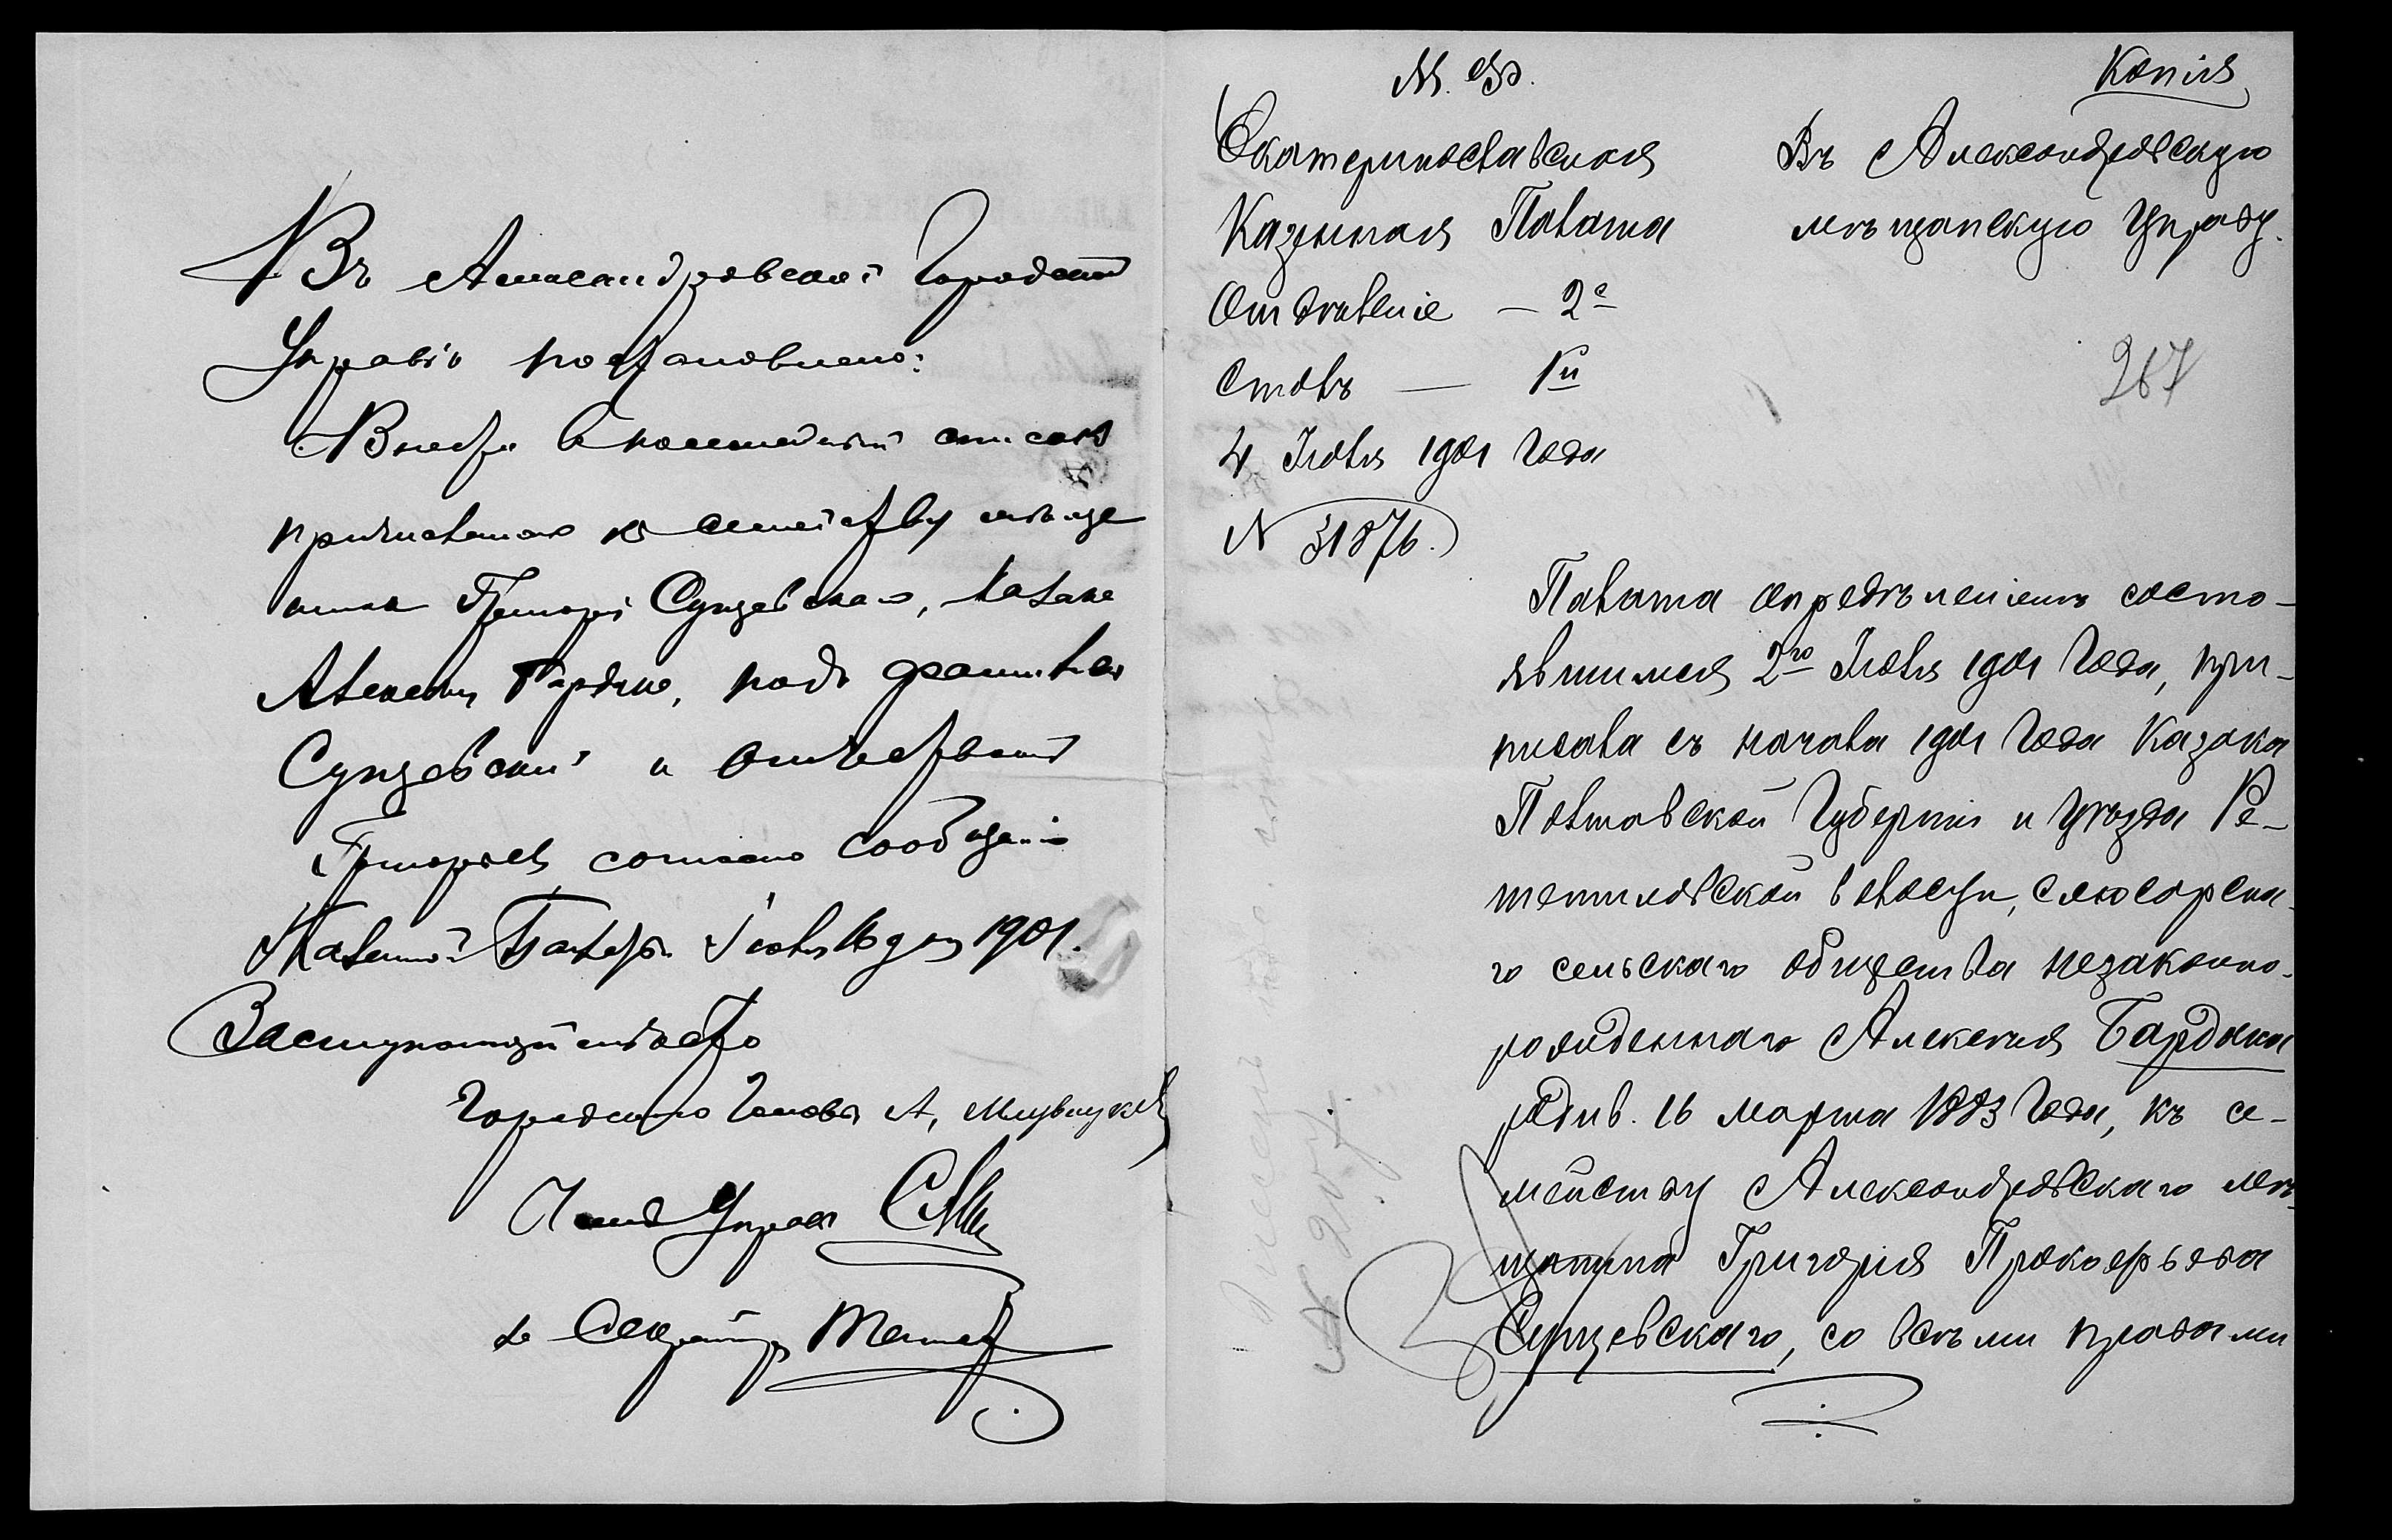 Въ Александровской Городской
Управѣ постановлено:
Внести в посемейный список
причисленого к семейству мѣща
нина Григорія Сунцевскаго, казака
Алексея Бардака, подъ фамиліей
Сунцевский и отчеством
Григорьев, согласно сообщенія
Казенной Палаты Іюля 1901.
Заступающій мѣсто
Городского Головы А.
Член Управы
Секретарь
М. Ф.
Екатеринославская
Казенная Палата
Отдѣленіе — 2е
Столъ — 1й
4 Іюля 1901 Года
N 31876.
Копія
Въ Александровскую
мѣщанскую Управу.
267
Палата опредѣленіемъ состо-
явшимся 2го Іюля 1901 Года, при-
писала съ начала 1901 Года Казака
Полтавской Губерніи и Уѣзда Ре-
шетиловской волости, Слюсарска-
го сельскаго общества незаконно-
рожденнаго Алексѣя Бардака
родив. 16 марта 1883 Года, къ се-
мейству Александровскаго мѣ-
щанина Григорія Прокофьева
Сунцевскаго, со всѣми правами